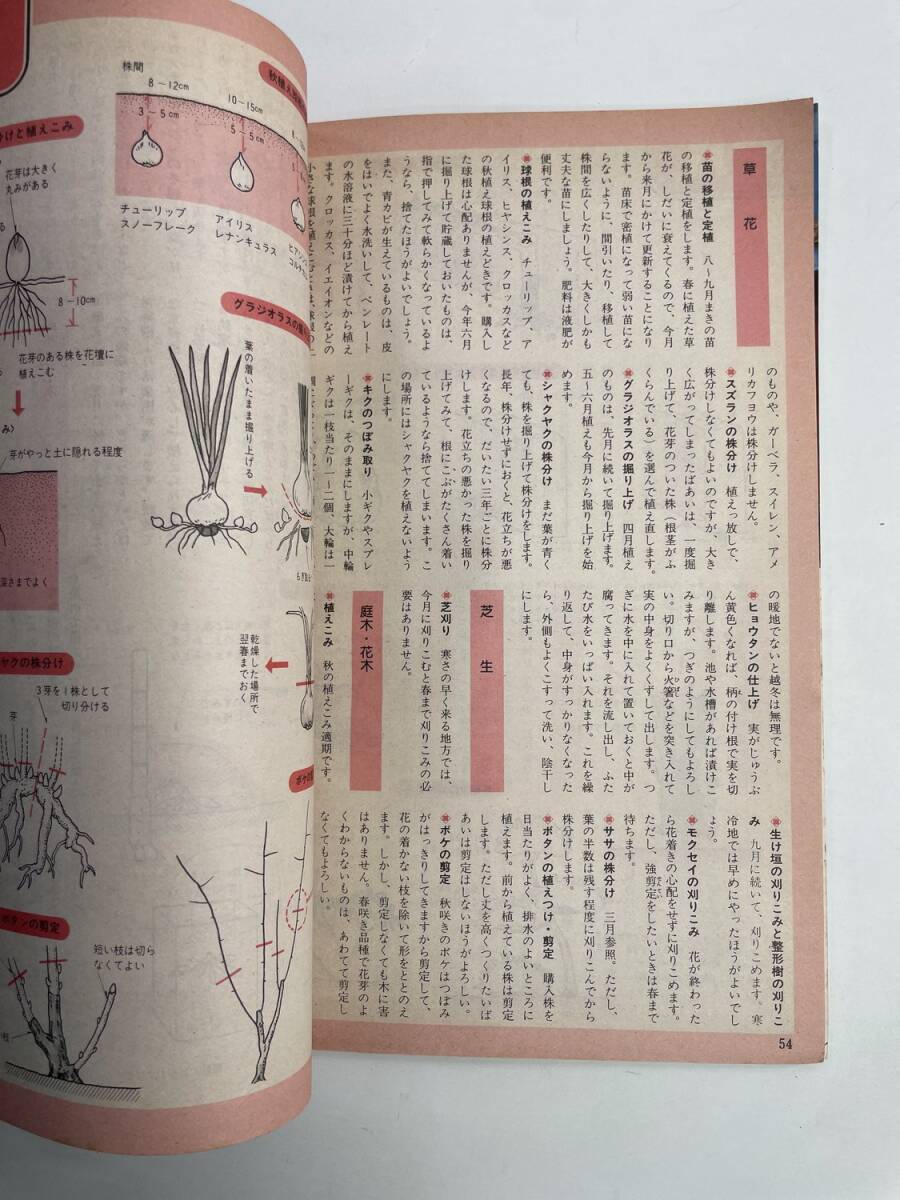 草花
❋苗の移植と定植　八〜九月まきの苗
の移植と定植をします。春に植えた草
花が、しだいに衰えてくるので、今月
から来月にかけて更新することになり
ます。苗床で密植になって弱い苗にな
らないように、間引いたり、移植して
株間を広くしたりして、大きくしかも
丈夫な苗にしましょう。肥料は液肥が
便利です。
❋球根の植えこみ　チューリップ、ア
イリス、ヒヤシンス、クロッカスなど
の秋植え球根の植えどきです。購入し
た球根は心配ありませんが、今年六月
に掘り上げて貯蔵しておいたものは、
指で押してみて軟らかくなっているよ
うなら、捨てたほうがよいでしょう。
また、青カビが生えているものは、皮
をはいでよく水洗いして、ベンレート
の水溶液に三十分ほど漬けてから植え
ます。クロッカス、イエイオンなどの
小さな球根を植えこむときは、球根の二
のものや、ガーベラ、スイレン、アメ
リカフヨウは株分けしません。
❋スズランの株分け　植えっ放しで、
株分けしなくてもよいのですが、大き
く広がってしまったばあいは、一度掘
り上げて、花芽のついた株（根茎がふ
くらんでいる）を選んで植え直します。
❋グラジオラスの掘り上げ　四月植え
のものは、先月に続いて掘り上げます。
五〜六月植えも今月から掘り上げを始
めます。
❋シャクヤクの株分け　まだ葉が青く
ても、株を掘り上げて株分けをします。
長年、株分けせずにおくと、花立ちが悪
くなるので、だいたい三年ごとに株分
けします。花立ちの悪かった株を掘り
上げてみて、根にこぶがたくさん着い
ているようなら捨ててしまいます。こ
の場所にはシャクヤクを植えないよう
にします。
❋キクのつぼみ取り　小ギクやスプレ
ーギクは、そのままにしますが、中輪
ギクは一枝当たり一〜二個、大輪は一
の暖地でないと越冬は無理です。
❋ヒョウタンの仕上げ　実がじゅうぶ
ん黄色くなれば、柄の付け根で実を切
り離します。池や水槽があれば漬けこ
みますが、つぎのようにしてもよろし
い。切り口から火箸などを突き入れて
実の中身をよくくずして出します。つ
ぎに水を中に入れて置いておくと中が
腐ってきます。それを流し出し、ふた
たび水をいっぱい入れます。これを繰
り返して、中身がすっかりなくなった
ら、外側もよくこすって洗い、陰干し
にします。
芝生
❋芝刈り　寒さの早く来る地方では、
今月に刈りこむと春まで刈りこみの必
要はありません。
庭木・花木
❋植えこみ　秋の植えこみ適期です。
❋生け垣の刈りこみと整形樹の刈りこ
み　九月に続いて、刈りこめます。寒
冷地では早めにやったほうがよいでし
ょう。
❋モクセイの刈りこみ　花が終わった
ら花着きの心配をせずに刈りこめます。
ただし、強剪定をしたいときは春まで
待ちます。
❋ササの株分け　三月参照。ただし、
葉の半数は残す程度に刈りこんでから
株分けします。
❋ボタンの植えつけ・剪定　購入株を
日当たりがよく、排水のよいところに
植えます。前から植えている株は剪定
します。ただし丈を高くつくりたいば
あいは剪定はしないほうがよろしい。
❋ボケの剪定　秋咲きのボケはつぼみ
がはっきりしてきますから剪定して、
花の着かない枝を除いて形をととのえ
ます。しかし、剪定しなくても木に害
はありません。春咲き品種で花芽のよ
くわからないものは、あわてて剪定し
なくてもよろしい。
54
株間
8－12cm
10－15cm
3－5cm
5－5cm
チューリップ
スノーフレーク
アイリス
ラナンキュラス
けと植えこみ
花芽は大きく
丸みがある
8－10cm
花芽のある株を花壇に
植えこむ
芽がやっと土に隠れる程度
深さまでよく
グラジオラスの掘り
葉の着いたまま掘り上げる
乾燥した場所で
翌春までおく
ヤクの株分け
3芽を1株として
切り分ける
芽
ボタンの剪定
短い枝は切ら
なくてよい
ボケの